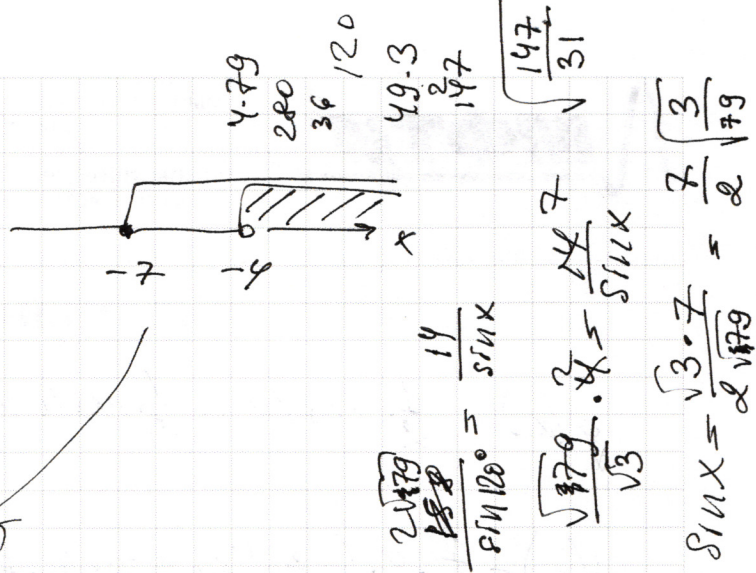 4·79
280
36
120
49·3
2
147
√(147/31)
-7 -4 x
2√79 / sin120° = 14 / sinx
√79 / √3 · 2 = 7 / sinx
sinx = √3·7 / 2√79 = 7/2 √(3/79)